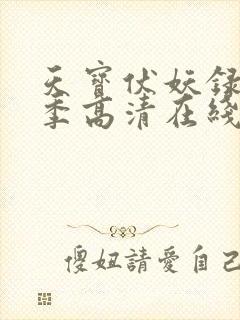 天寶伏妖録
季高清在綫
傻妞請愛自己